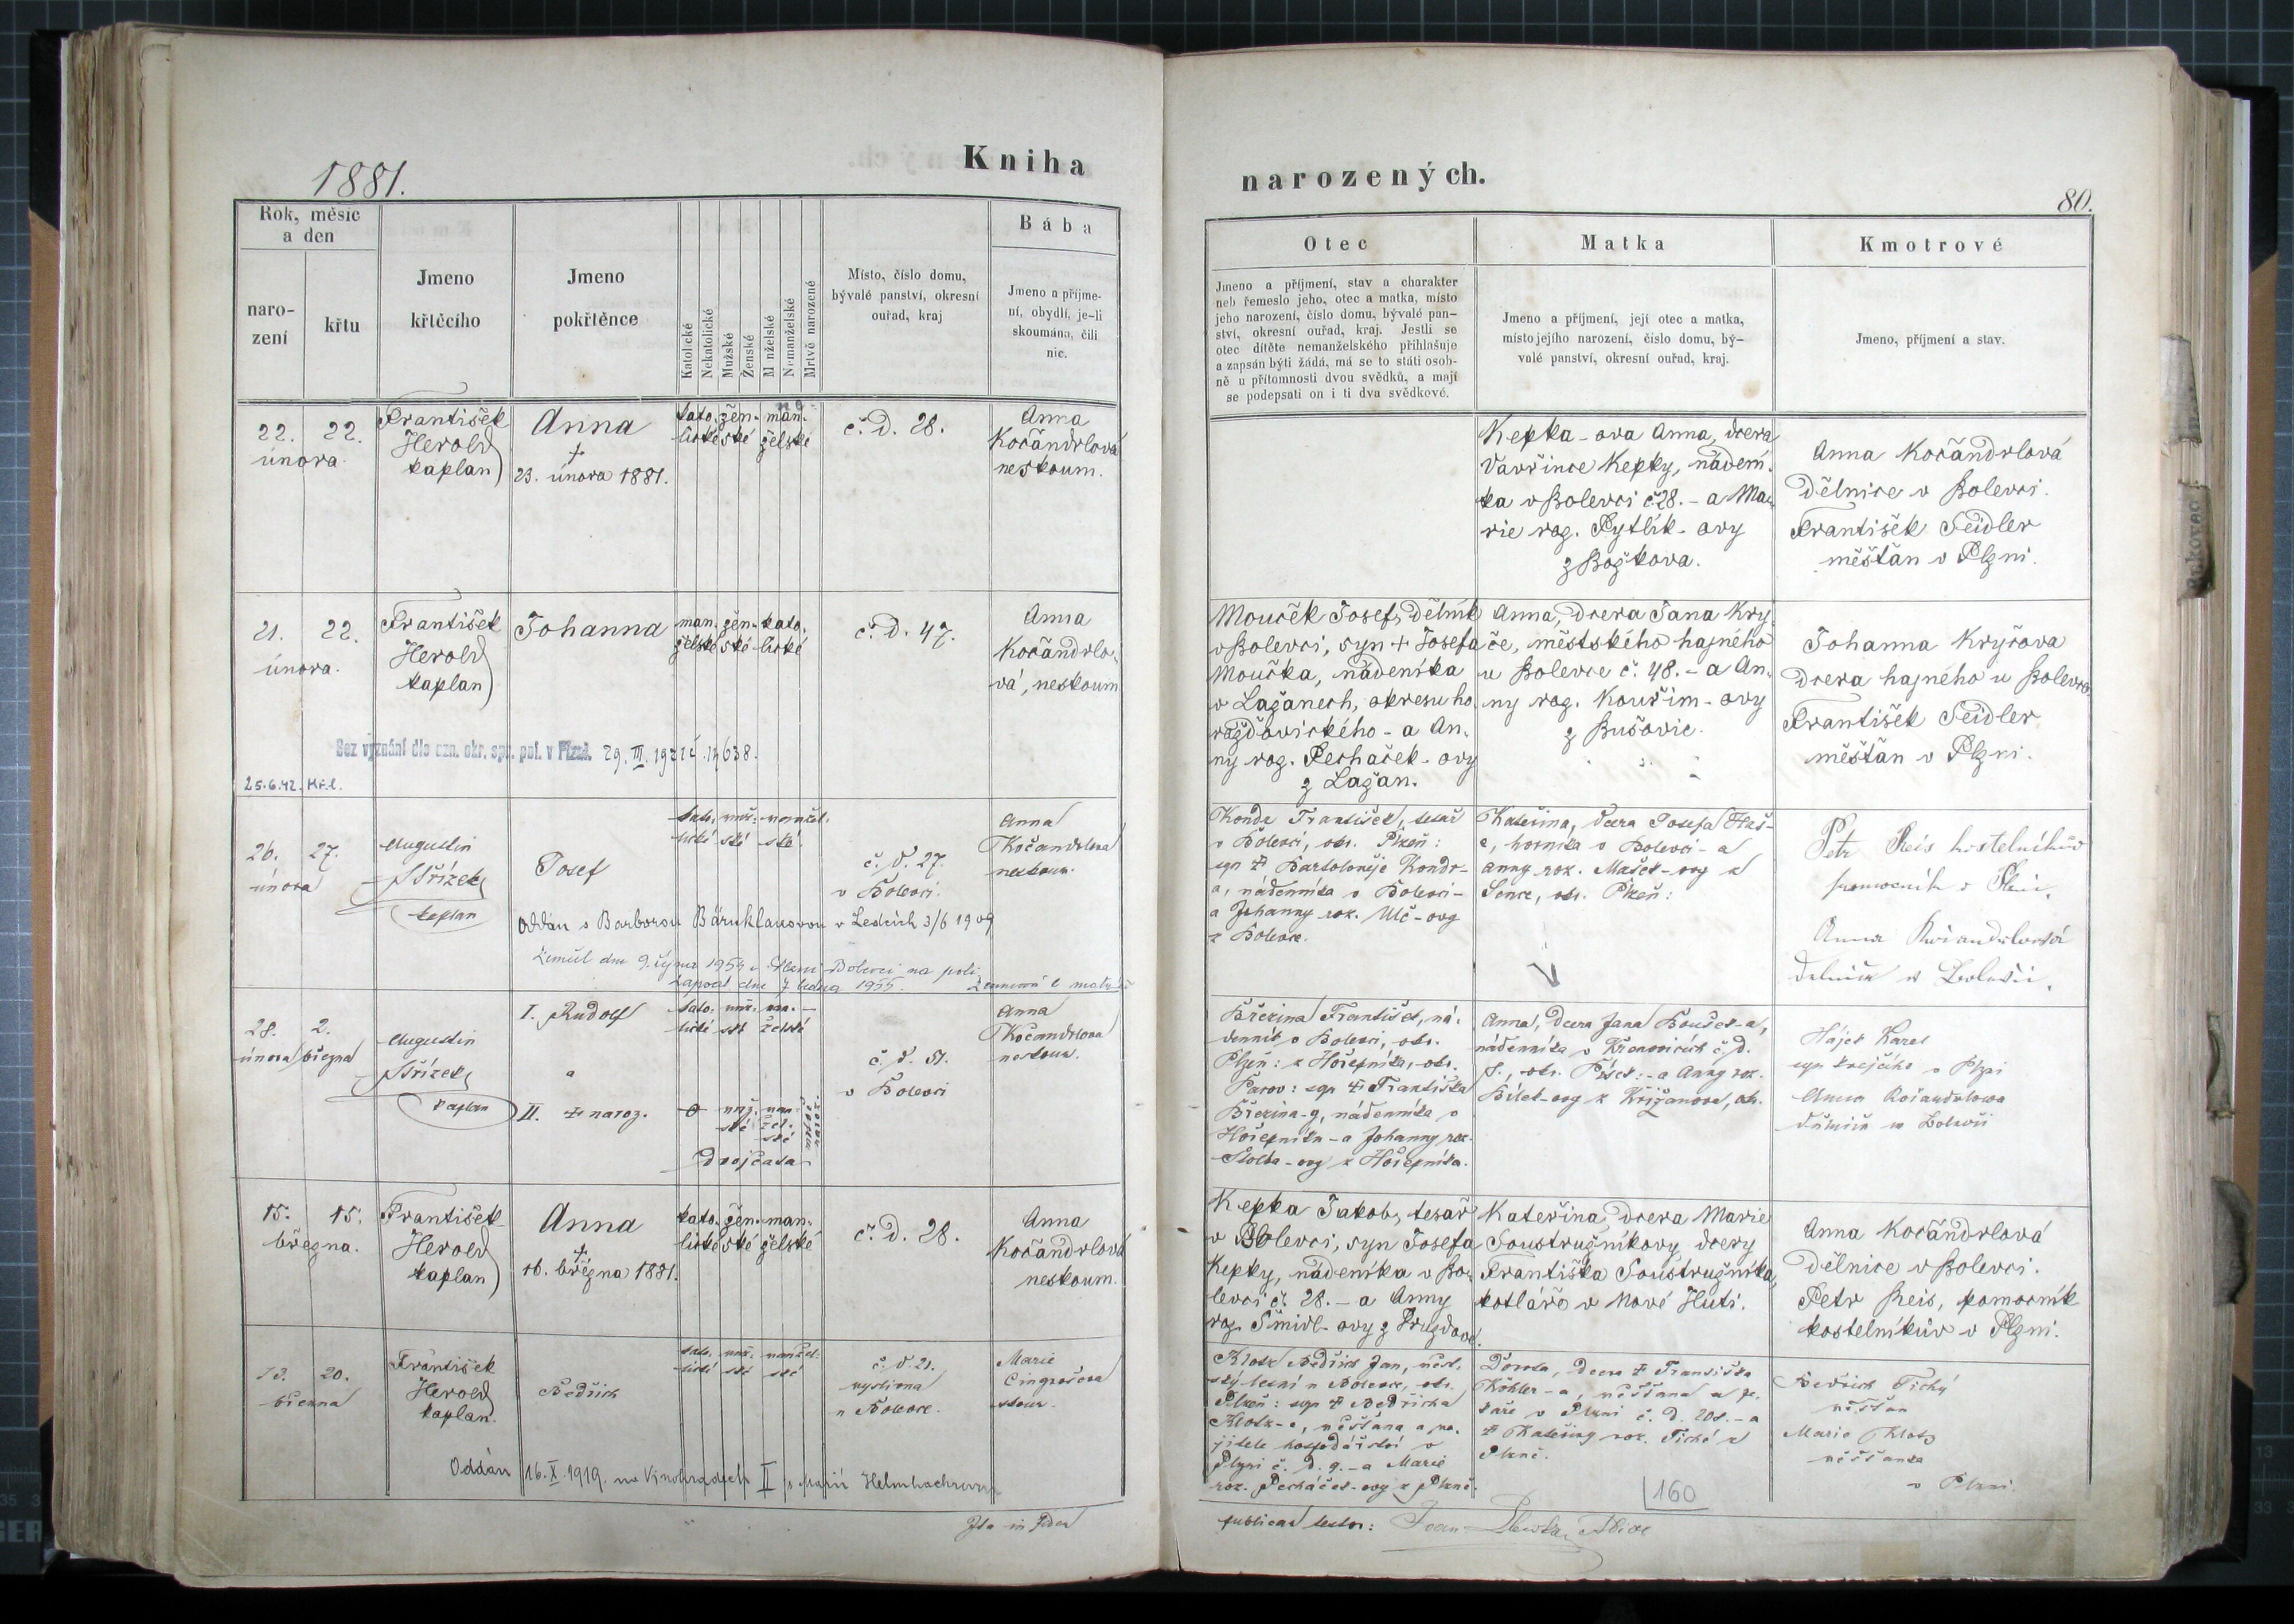 1881.
Kniha
Rok, měsíc
a den
naro-
zení
křtu
Jmeno
křtěcího
Jmeno
pokřtěnce
Katolické
Nekatolické
Mužské
Ženské
M nželské
Nemanželské
Mrtvě narozené
Místo, číslo domu,
bývalé panství, okresní
ouřad, kraj
Bába
Jmeno a příjme-
ní, obydlí, je-li
skoumána, čili
nic.
22. 22.
února.
František
Herold
kaplan
Anna
†
23. února 1881.
kato. žen. man.
lické ské želské
ne-
č. d. 28.
Anna
Kočandrlová
neskoum.
21. 22.
února.
František
Herold
kaplan
Johanna
man. žen. kato.
želské ské lické
č. d. 47.
Anna
Kočandrlo-
vá, neskoum
Bez vyznání dle ozn. okr. spr. pol. v Plzni. 29. III.
25.6.42.
26. 27.
února
Augustin
Střízek
kaplan
Josef
č. d. 27.
v Bolevci.
Anna
Kočandrlova
neskoum.
Oddán s Barborou v Ledcích 3/6 1909
Zemřel dne 9. října 1954 v Plzni-Bolevci
dne 7. ledna 1955.
28. 2.
února března
Augustin
Střízek
kaplan
I. Rudolf
a
II. † naroz.
Dvojčata
č. d. 51.
v Bolevci
Anna
Kočandrlova
neskoum.
15. 15.
března.
František
Herold
kaplan
Anna
†
16. března 1881.
kato. žen. man.
lické ské želské
č. d. 28.
Anna
Kočandrlová
neskoum.
13. 20.
března
František
Herold
kaplan.
Bedřich
č. d. 21.
myslivna
u Bolevce.
Marie
Cingrošova
skoum.
Oddán 16. X. 1919. na Vinohradech II s Marií
Ita in fidem
narozených.
80.
Otec
Jmeno a příjmení, stav a charakter
neb řemeslo jeho, otec a matka, místo
jeho narození, číslo domu, bývalé pan-
ství, okresní ouřad, kraj. Jestli se
otec dítěte nemanželského přihlašuje
a zapsán býti žádá, má se to státi osob-
ně u přítomnosti dvou svědků, a mají
se podepsati on i ti dva svědkové.
Matka
Jmeno a příjmení, její otec a matka,
místo jejího narození, číslo domu, bý-
valé panství, okresní ouřad, kraj.
Kmotrové
Jmeno, příjmení a stav.
Kepka-ova Anna, dcera
Vavřince Kepky, nádení-
ka v Bolevci č 28. - a Ma-
rie roz. Pytlík-ovy
z Božkova.
Anna Kočandrlová
dělnice v Bolevci.
František Seidler
měšťan v Plzni.
Mouček Josef, dělník
v Bolevci, syn † Josefa
Moučka, nádeníka
v Lažanech, okresu ho-
ražďovického - a An-
ny roz. Pechaček-ovy
z Lažan.
Anna, dcera Jana Kry-
če, městského hajného
u Bolevce č. 48. - a An-
ny roz. Kouřim-ovy
z Bušovic.
Johanna Kryčova
dcera hajného u Bolevce.
František Seidler
měšťan v Plzni.
Konda František, tesař
v Bolevci, okr. Plzeň:
syn † Bartoloměje Kond-
a, nádenníka v Bolevci -
a Johanny roz. Ulč-ovy
z Bolevce.
Kateřina, dcera Josefa
horníka v Bolevci - a
Anny roz. Mašek-ovy z
Sence, okr. Plzeň:
Petr Reis kostelníkův
pomocník v Plzni.
Anna Kočandrlová
dělnice v Bolevci.
Březina František, ná-
denník v Bolevci, okr.
Plzeň: z Hořepníka, okr.
Pacov: syn † Františka
Březina-y, nádenníka v
Hořepníku - a Johanny roz.
Stolba-ovy z Hořepníka.
Anna, dcera Jana Boušek-a,
nádenníka v č. d.
okr. Písek: - a Anny roz.
Bílek-ovy z Křižanova, okr.
Hájek Karel
syn krejčího v Plzni
Anna Kočandrlova
dělnice v Bolevci
Kepka Jakob, tesař
v Bolevci, syn Josefa
Kepky, nádeníka v Bo-
levci č. 28. - a Anny
roz. Šmidl-ovy z
Kateřina, dcera Marie
Soustružníkovy dcery
Františka Soustružníka,
kotláře v Nové Huti.
Anna Kočandrlová
dělnice v Bolevci.
Petr Reis, pomocník
kostelníkův v Plzni.
Klotz Bedřich Jan, měst-
ský lesní u Bolevce, okr.
Plzeň: syn † Bedřicha
Klotz-e, měšťana a ma-
jitele hospodářství v
Plzni č. d. 9. - a Marie
roz. Pecháček-ovy z Plzně.
Dorota, dcera † Františka
Köhler-a, měšťana a pe-
kaře v Plzni č. d. 208. - a
† Kateřiny roz. Tiché z
Plzně.
Bedřich Tichý
měšťan
Marie Klotz
měšťanka
v Plzni.
160
publicae testor: